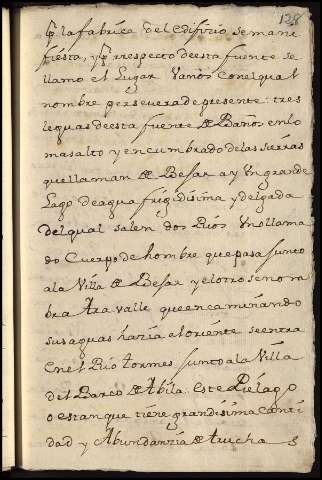 128
q̃ la fabrica del edifizio se mani
fiesta, y q̃ rrespecto deesta fuente se
llamo el Lugar Vaños con el qual
nombre persevera de presente: tres
leguas de esta fuente de Baños en lo
mas alto y encumbrado de las sierras
que llaman de Besar ay Un grande
Lago de agua frigidisima y delgada
del qual salen dos Rios Uno llama
do Cuerpo de hombre que pasa junto
a la Villa de Besar y el otro se nom
bra Ara valle que encaminando
sus aguas hazia el oriente se entra
en el Rio tormes junto a la Villa
del Barco de Abila: Este Pielago
o estanque tiene grandisima canti
dad y Abundanzia de truchas